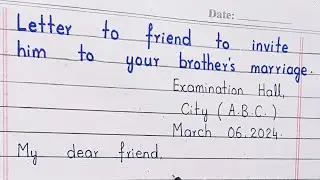 Date:
Letter to friend to invite
him to your brother's marriage.
Examination Hall,
City (A.B.C.)
March 06, 2024.
My dear friend.